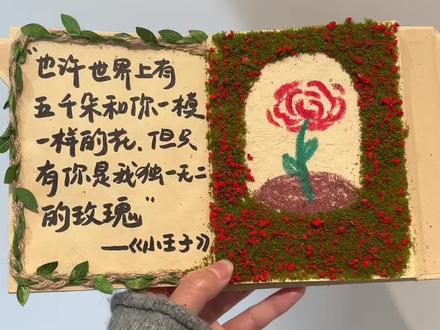 "也许世界上有
五千朵和你一模
一样的花、但只
有你是我独一无二
的玫瑰"
——《小王子》